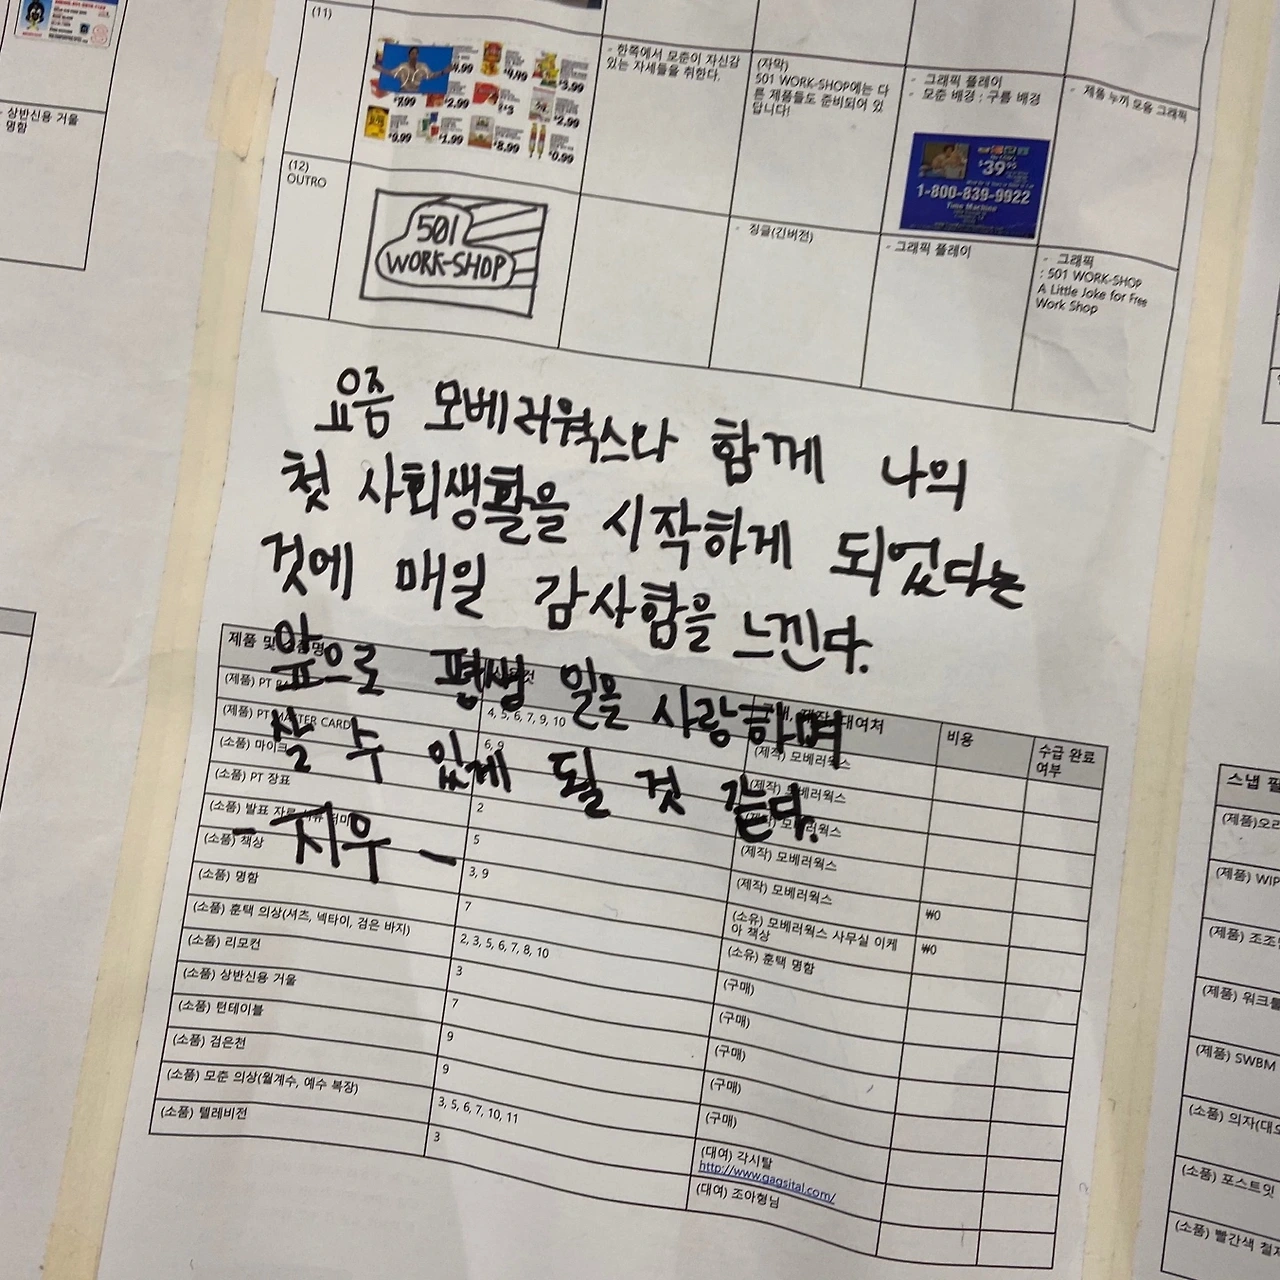 상반신용 거울
명함
(11)
$4.99 $4.49 $3.99
$7.99 $2.99 $3 $2.99
$9.99 $1.99 $8.99 $0.99
- 한쪽에서 모춘이 자신감
있는 자세들을 취한다.
(자막)
501 WORK-SHOP에는 다
른 제품들도 준비되어 있
답니다!
- 그래픽 플레이
- 모춘 배경 : 구름 배경
$39.95
1-800-839-9922
Time Machine
- 제품 누끼 모음 그래픽
(12)
OUTRO
501
WORK-SHOP
- 징글(긴버전)
- 그래픽 플레이
- 그래픽
: 501 WORK-SHOP
A Little Joke for Free
Work Shop
요즘 모베러웍스라 함께 나의
첫 사회생활을 시작하게 되었다는
것에 매일 감사함을 느낀다.
앞으로 평생 일을 사랑하며
살 수 있게 될 것 같다.
- 지우 -
제품 및
대여처 비용 수급 완료
여부
(제품) PT
(제품) PT MASTER CARD 4, 5, 6, 7, 9, 10 (제작) 모베러웍스
(소품) 마이크 6, 9 (제작) 모베러웍스
(소품) PT 장표 모베러웍스
(소품) 발표 자료 2 (제작) 모베러웍스
(소품) 책상 5 (제작) 모베러웍스 ₩0
(소품) 명함 3, 9 (소유) 모베러웍스 사무실 이케
아 책상 ₩0
(소품) 훈택 의상(셔츠, 넥타이, 검은 바지) 7 (소유) 훈택 명함
(소품) 리모컨 2, 3, 5, 6, 7, 8, 10 (구매)
(소품) 상반신용 거울 3 (구매)
(소품) 턴테이블 7 (구매)
(소품) 검은천 9 (구매)
(소품) 모춘 의상(월계수, 예수 복장) 9 (구매)
(소품) 텔레비전 3, 5, 6, 7, 10, 11 (대여) 각시탈
http://www.gagsital.com/
3 (대여) 조아형님
스냅 필
(제품)오리
(제품) WIP
(제품) 조조
(제품) 워크툴
(제품) SWBM
(소품) 의자(대
(소품) 포스트잇
(소품) 빨간색 철